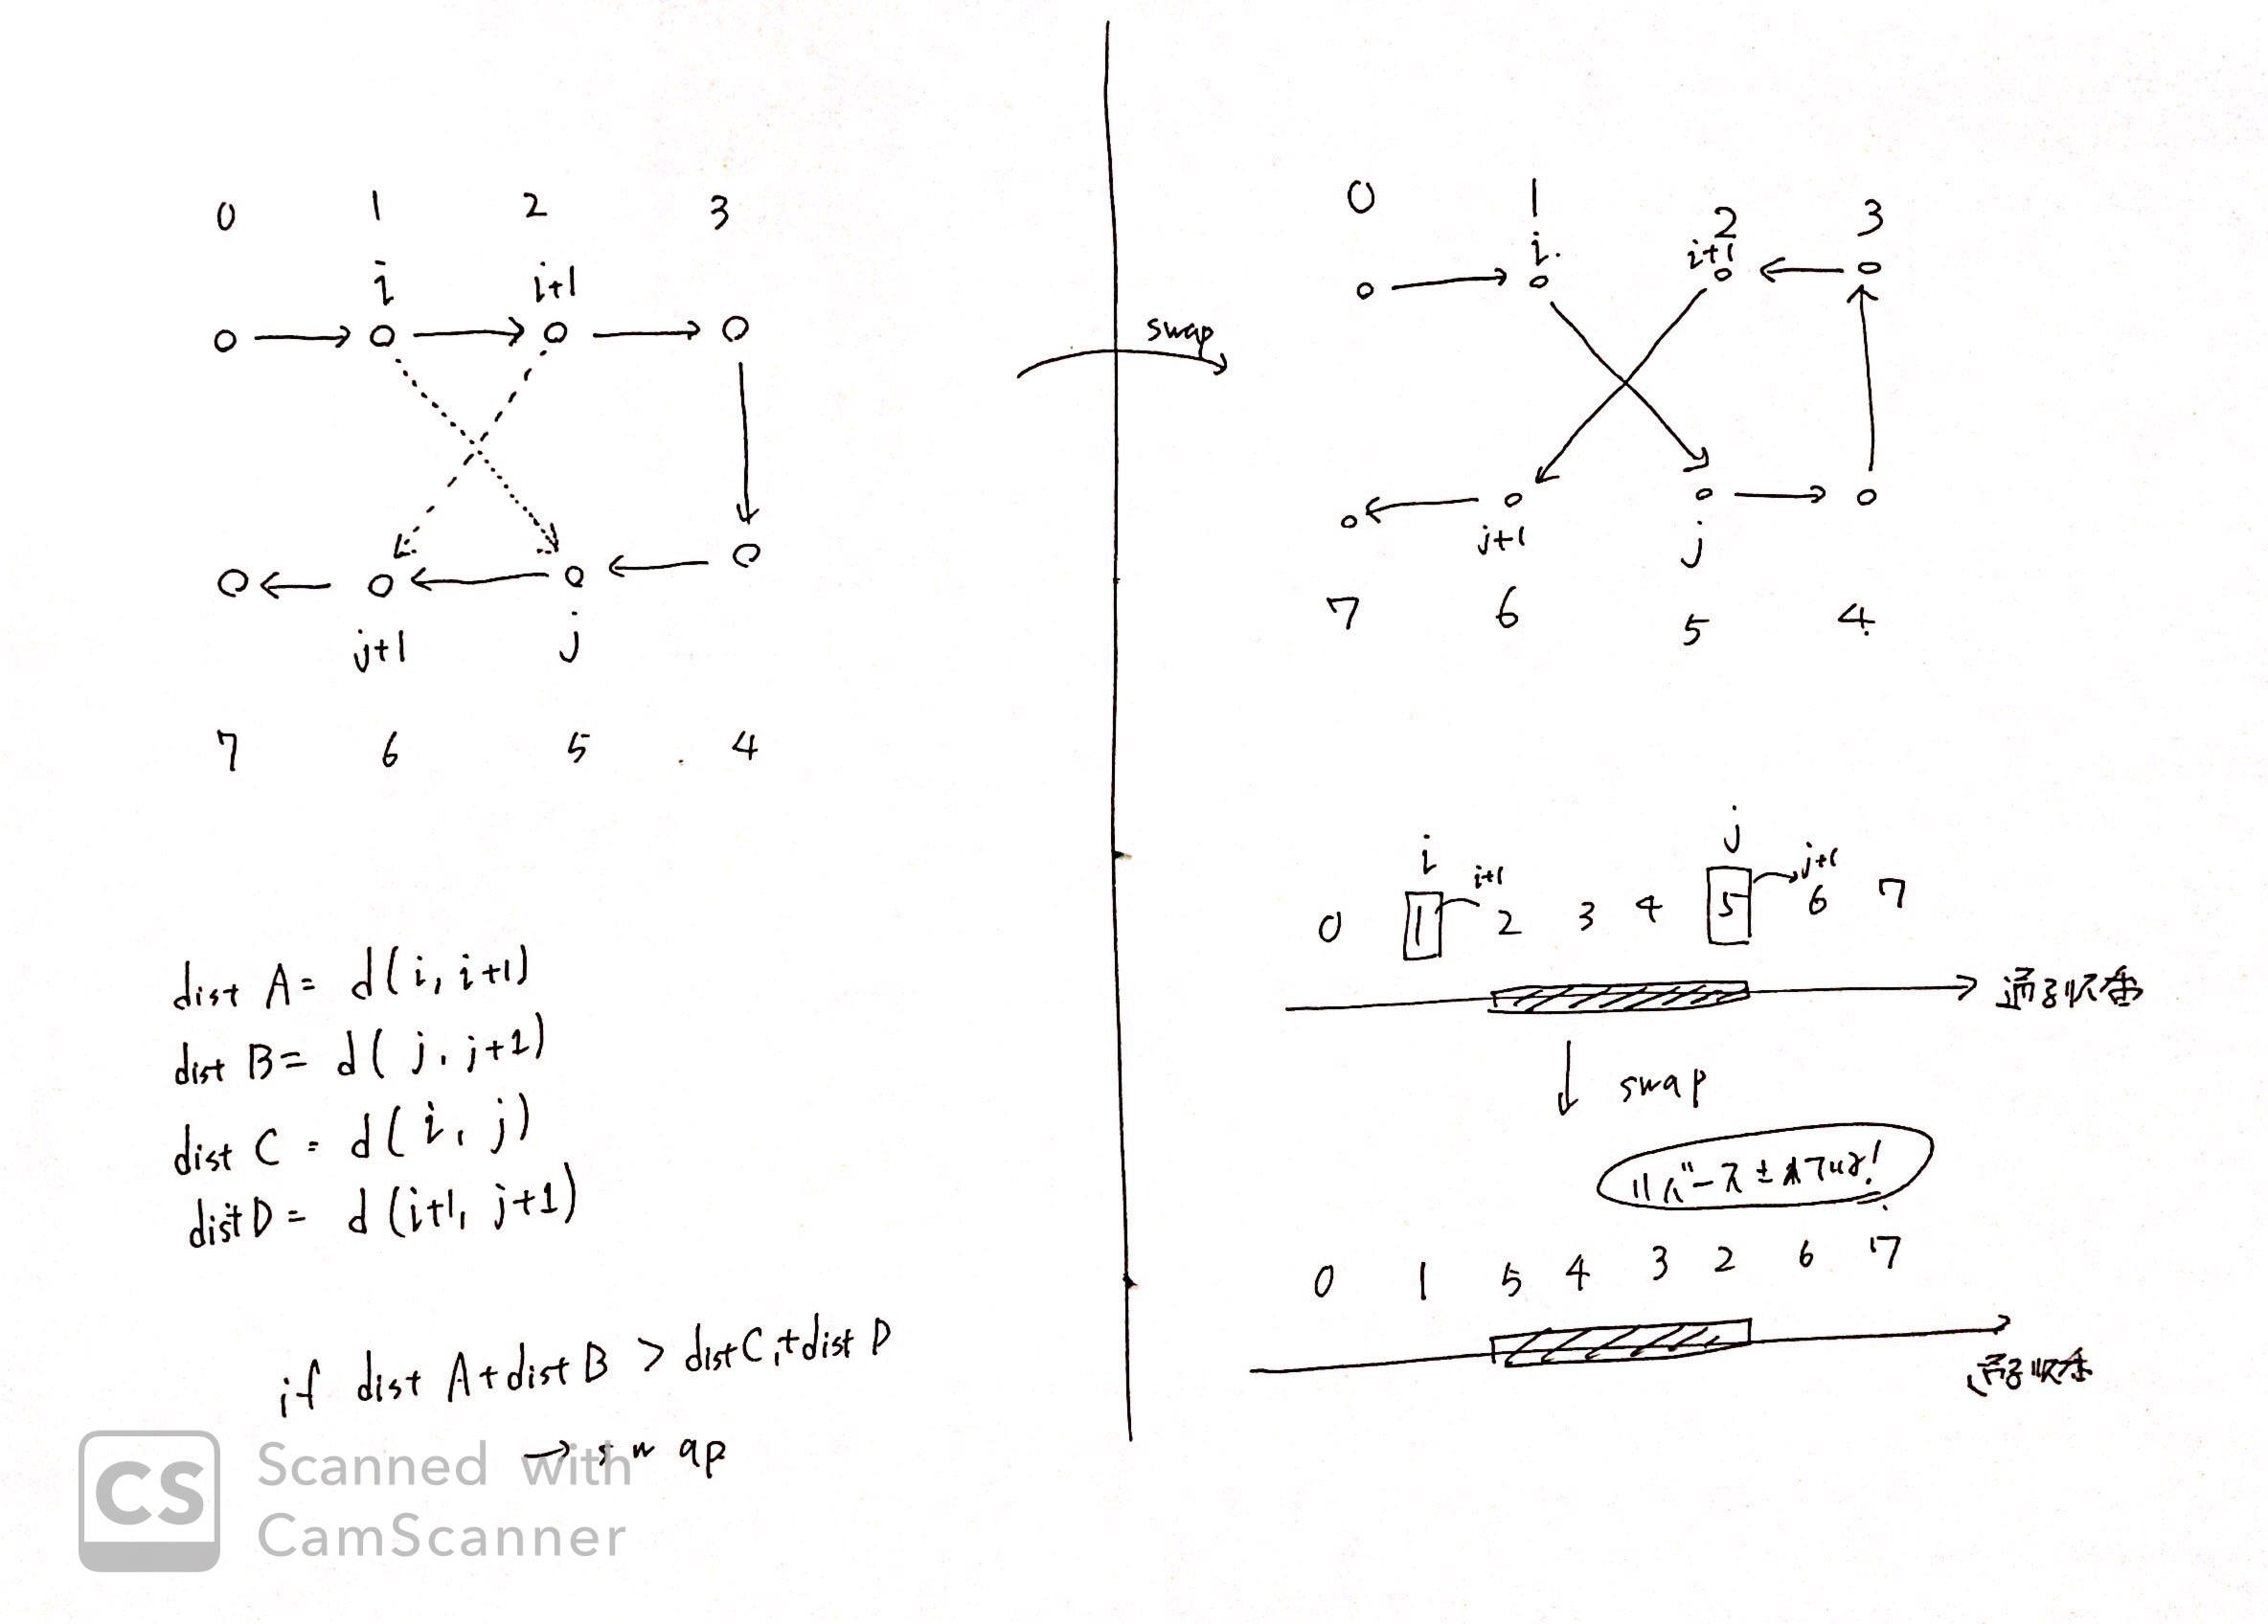 0 1 2 3
i i+1
j+1 j
7 6 5 4
dist A = d(i, i+1)
dist B = d(j, j+1)
dist C = d(i, j)
dist D = d(i+1, j+1)
if dist A + dist B > dist C + dist D
→ swap
swap
0 1 2 3
i i+1
j+1 j
7 6 5 4
i j
i+1 j+1
0 1 2 3 4 5 6 7
通る順番
swap
リバースされてるよ!
0 1 5 4 3 2 6 7
通る順番
CS Scanned with
CamScanner